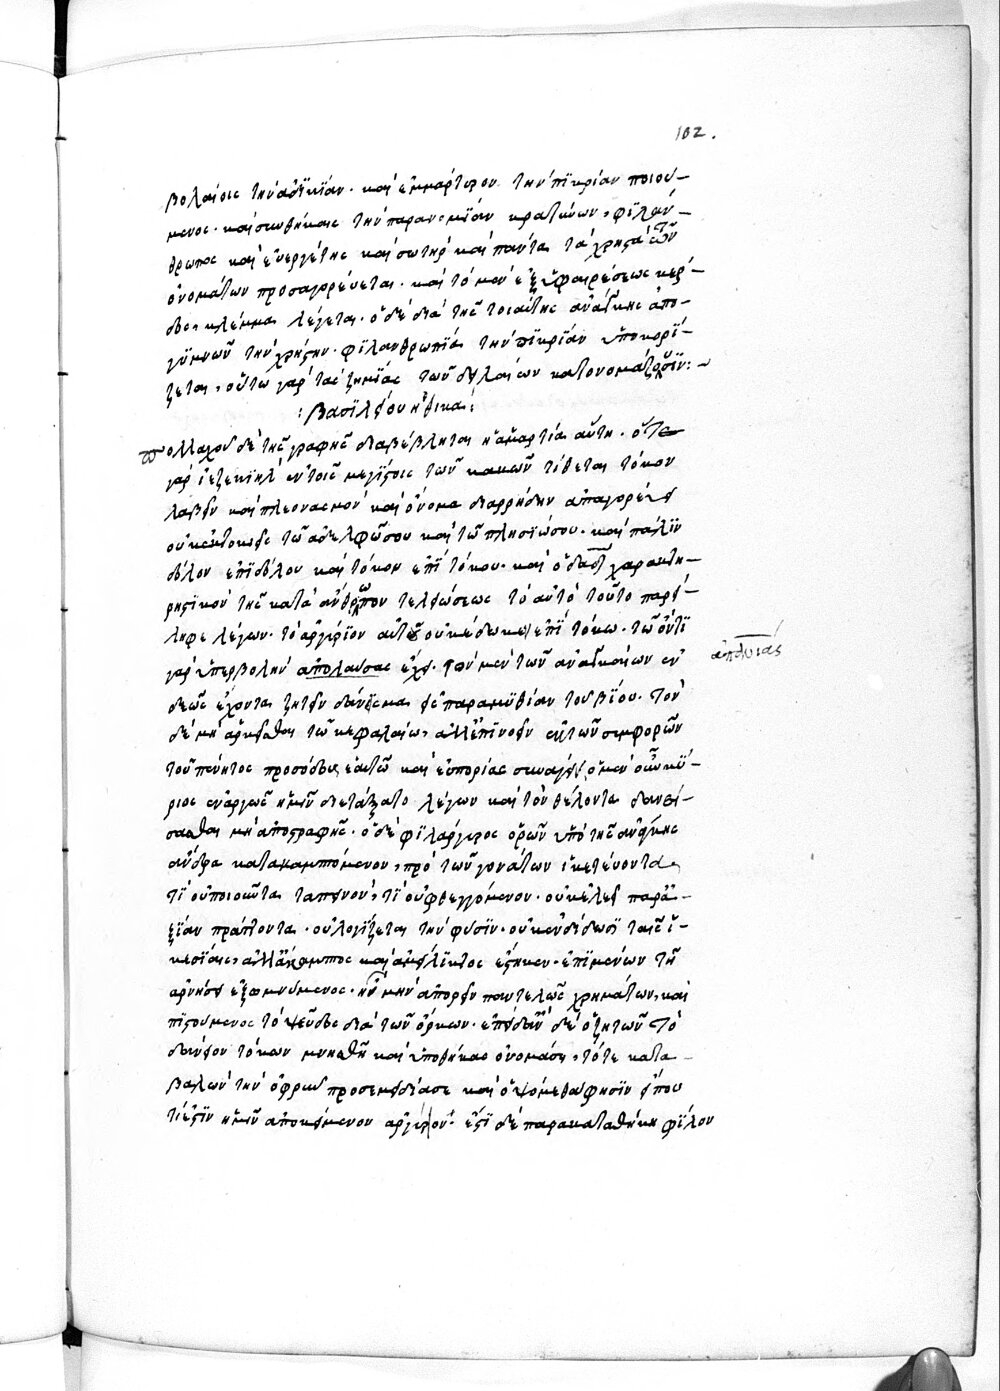 102.
βολαίοις τὴν ἀδικίαν· καὶ ἐμμάρτυρον τὴν πικρίαν ποιού–
μενος· καὶ συνθήκαις τὴν παρανομίαν κρατύνων, φιλάν–
θρωπος καὶ εὐεργέτης καὶ σωτὴρ καὶ πάντα τὰ χρηστὰ τῶν
ὀνομάτων προσαγορεύεται· καὶ τὸ μὲν ἐξ ὑφαιρέσεως κέρ–
δος, κλέμμα λέγεται· ὁ δὲ διὰ τῆς τοιαύτης ἀνάγκης ἀπο–
γυμνῶν τὴν χρῆσιν· φιλανθρωπία τὴν πικρίαν ὑποκορί–
ζεται, οὕτω γὰρ τὰς ζημίας τῶν δηλαίων κατονομάζουσιν:
:Βασιλείου ἠθικά:
πολλαχοῦ δὲ τῆς γραφῆς διαβέβληται ἡ ἁμαρτία αὕτη· ὅτε
γὰρ ἰεζεκιὴλ ἐν τοῖς μεγίστοις τῶν κακῶν τίθεται τόκον
λαβεῖν καὶ πλεονασμόν καὶ ὁ νόμος διαρρήδην ἀπαγορεύει
οὐκ ἐκτοκιεῖς τῷ ἀδελφῷ σου καὶ τῷ πλησίω σου· καὶ πάλιν
δόλον ἐπὶ δόλου καὶ τόκον ἐπὶ τόκου· καὶ ὁ δαδ χαρακτη–
ριστικὸν τῆς κατὰ ἄνθρωπον τελειώσεως τὸ αὐτὸ τοῦτο παρεί–
ληφε λέγων· τὸ ἀργύριον αὐτοῦ οὐκ ἔδωκεν ἐπὶ τόκω· τῷ ὄντι
γὰρ ὑπερβολὴν ἀπολαύσας ἔχει· τὸν μὲν τῶν ἀναγκαίων ἐν
ἀπανθρωπίας
δεῶς ἔχοντα ζητεῖν δάνεισμα εἰς παραμυθίαν τοῦ βίου. τὸν
δὲ μὴ ἀρκεῖσθαι τῷ κεφαλαίω, ἀλλ' ἐπινοεῖν ἐκ τῶν συμφορῶν
τοῦ πένητος προσόδους ἑαυτῷ καὶ εὐπορίας συνάγειν, ὁ μὲν οὖν κύ–
ριος ἐναργῶς ἡμῖν διετάξατο λέγων καὶ τὸν θέλοντα δανεί–
σασθαι μὴ ἀποστραφῇς· ὁ δὲ φιλάργυρος ὁρῶν ὑπὸ τῆς ἀνάγκης
ἄνδρα κατακαμπτόμενον, πρὸ τῶν γονάτων ἱκετεύοντα,
τί οὐ ποιοῦντα ταπεινόν, τί οὐ φθεγγόμενον· οὐκ ἐλεεῖ παρὰ ἀ–
ξίαν πράττοντα· οὐ λογίζεται τὴν φύσιν· οὐκ ἐνδίδωσι ταῖς ἱ–
κεσίαις, ἀλλ' ἄκαμπτος καὶ ἀμείλικτος ἕστηκεν· ἐπιμένων τῇ
ἀρνήσει ἐξομνύμενος· ἦ μὴν ἀπορεῖν παντελῶς χρημάτων, καὶ
πιστούμενος τὸ ψεῦδος διὰ τῶν ὅρκων· ἐπειδὰν δὲ ὁ ζητῶν τὸ
δάνειον τόκων μνησθῇ καὶ ὑποθήκας ὀνομάσῃ, τότε κατα–
βαλὼν τὴν ὀφρὺν προσεμειδίασε καὶ ὀψόμεθα φησὶν εἴ που
τί ἐστὶν ἡμῖν ἀποκείμενον ἀργύριον· ἔστι δὲ παρακαταθήκη φίλου